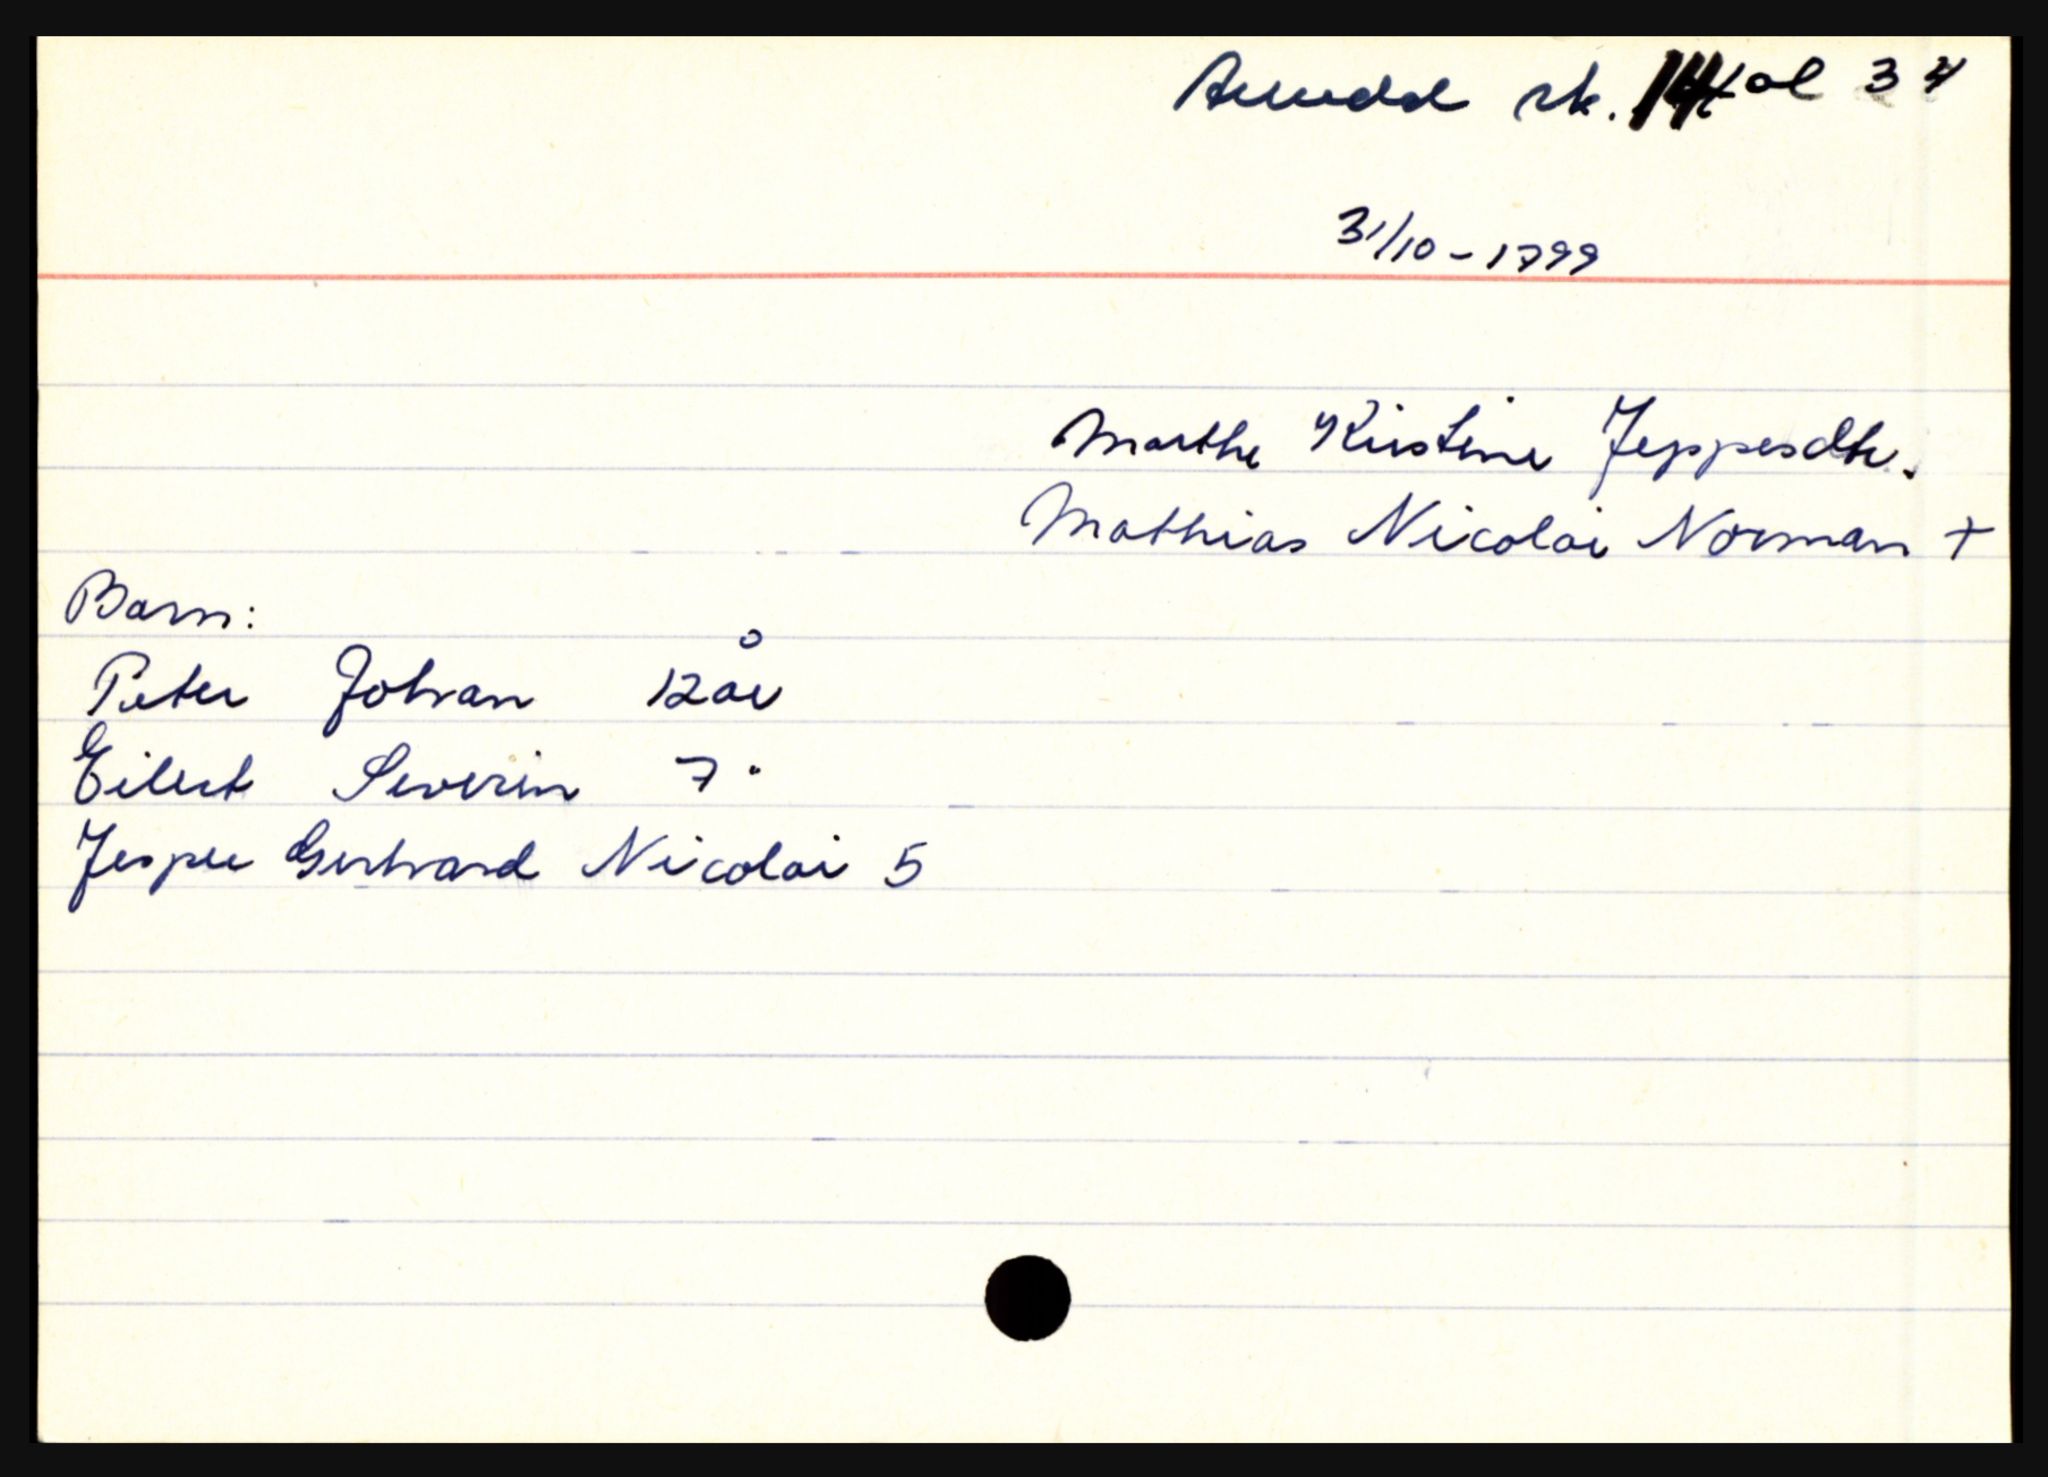 Arendal sk. 14 fol 34
31/10-1799
Marthe Kirstine Jeppesdtr.
Mathias Nicolai Norman +
Barn:
Peter Johan 12 år
Eilert Severin 7 "
Jesper Gerhard Nicolai 5